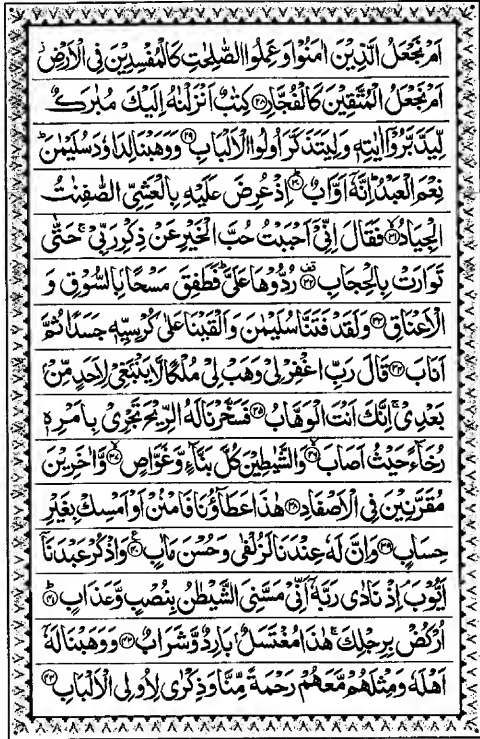 اَمْ نَجْعَلُ الَّذِيْنَ اٰمَنُوْا وَعَمِلُوا الصّٰلِحٰتِ كَالْمُفْسِدِيْنَ فِى الْاَرْضِ
اَمْ نَجْعَلُ الْمُتَّقِيْنَ كَالْفُجَّارِ ۲۸ كِتٰبٌ اَنْزَلْنٰهُ اِلَيْكَ مُبٰرَكٌ
لِّيَدَّبَّرُوْۤا اٰيٰتِهٖ وَلِيَتَذَكَّرَ اُولُوا الْاَلْبَابِ ۲۹ وَوَهَبْنَا لِدَاوٗدَ سُلَيْمٰنَ ؕ
نِعْمَ الْعَبْدُ ؕ اِنَّهٗۤ اَوَّابٌ ؕ ۳۰ اِذْ عُرِضَ عَلَيْهِ بِالْعَشِىِّ الصّٰفِنٰتُ
الْجِيَادُ ۙ ۳۱ فَقَالَ اِنِّىْۤ اَحْبَبْتُ حُبَّ الْخَيْرِ عَنْ ذِكْرِ رَبِّىْ ۚ حَتّٰى
تَوَارَتْ بِالْحِجَابِ ۳۲ رُدُّوْهَا عَلَىَّ ؕ فَطَفِقَ مَسْحًا ۢ بِالسُّوْقِ وَ
الْاَعْنَاقِ ۳۳ وَلَقَدْ فَتَنَّا سُلَيْمٰنَ وَاَلْقَيْنَا عَلٰى كُرْسِيِّهٖ جَسَدًا ثُمَّ
اَنَابَ ۳۴ قَالَ رَبِّ اغْفِرْ لِىْ وَهَبْ لِىْ مُلْكًا لَّا يَنْۢبَغِىْ لِاَحَدٍ مِّنْۢ
بَعْدِىْ ۚ اِنَّكَ اَنْتَ الْوَهَّابُ ۳۵ فَسَخَّرْنَا لَهُ الرِّيْحَ تَجْرِىْ بِاَمْرِهٖ
رُخَآءً حَيْثُ اَصَابَ ۙ ۳۶ وَالشَّيٰطِيْنَ كُلَّ بَنَّآءٍ وَّغَوَّاصٍ ۙ ۳۷ وَّاٰخَرِيْنَ
مُقَرَّنِيْنَ فِى الْاَصْفَادِ ۳۸ هٰذَا عَطَآؤُنَا فَامْنُنْ اَوْ اَمْسِكْ بِغَيْرِ
حِسَابٍ ۳۹ وَاِنَّ لَهٗ عِنْدَنَا لَزُلْفٰى وَحُسْنَ مَاٰبٍ ۴۰ وَاذْكُرْ عَبْدَنَاۤ
اَيُّوْبَ ۘ اِذْ نَادٰى رَبَّهٗۤ اَنِّىْ مَسَّنِىَ الشَّيْطٰنُ بِنُصْبٍ وَّعَذَابٍ ؕ ۴۱
اُرْكُضْ بِرِجْلِكَ ۚ هٰذَا مُغْتَسَلٌ ۢ بَارِدٌ وَّشَرَابٌ ۴۲ وَوَهَبْنَا لَهٗۤ
اَهْلَهٗ وَمِثْلَهُمْ مَّعَهُمْ رَحْمَةً مِّنَّا وَذِكْرٰى لِاُولِى الْاَلْبَابِ ۴۳